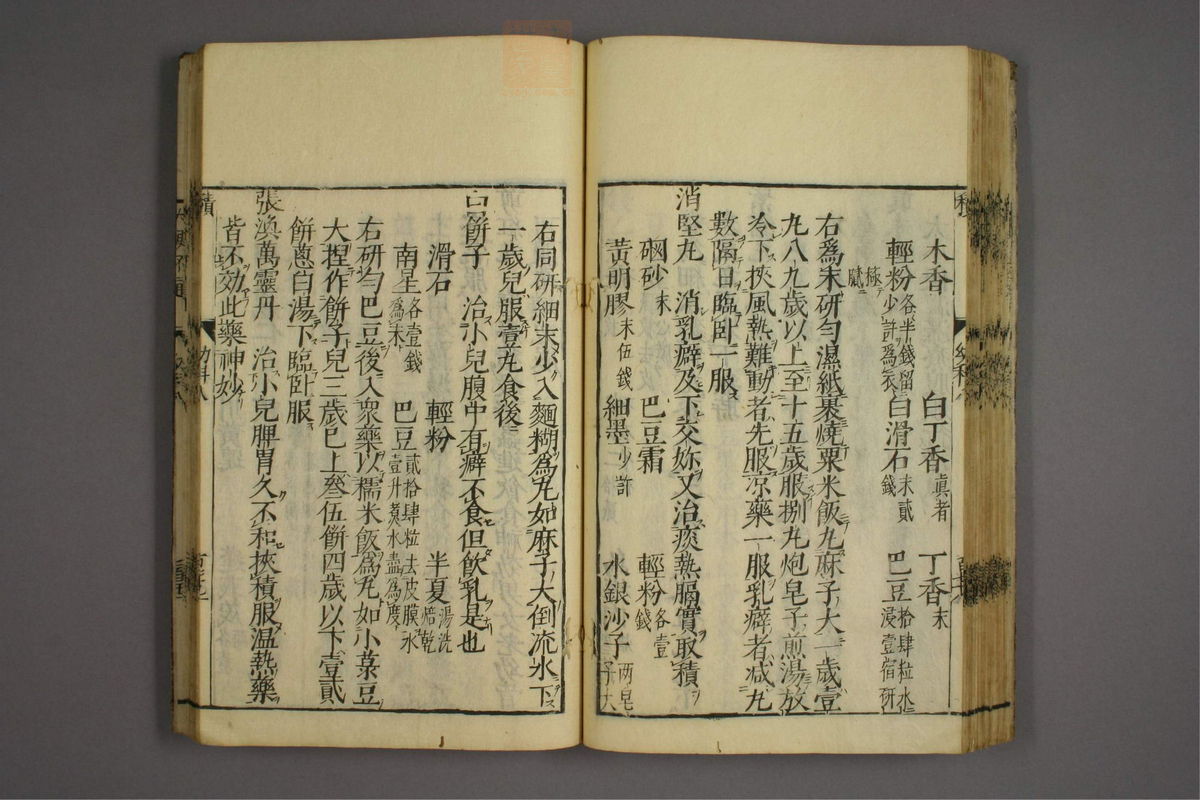 木香　白丁香真者　丁香末
輕粉各半錢留少許爲衣　白滑石末貳錢　巴豆拾肆粒水浸壹宿研
極膩
右爲末研勻濕紙裹燒粟米飯丸麻子大一歲壹
丸八九歲以上至十五歲服捌丸炮皂子煎湯放
冷下挾風熱難動者先服凉藥一服乳癖者减丸
數隔日臨卧一服
消堅丸　消乳癖及下交妳又治痰熱膈實取積
硇砂末　巴豆霜　輕粉各壹錢
黃明膠末伍錢　細墨少許　水銀沙子兩皂子大
右同研細末少入麵糊爲丸如麻子大倒流水下
一歲兒服壹丸食後
白餅子　治小兒腹中有癖不食但飲乳是也
滑石　輕粉　半夏湯洗焙乾
南星各壹錢爲末　巴豆貳拾肆粒去皮膜水壹升煮水盡爲度
右研勻巴豆後入衆藥以糯米飯爲丸如小菉豆
大捏作餅子兒三歲巳上叄伍餅四歲以下壹貳
餅蔥白湯下臨卧服
張渙萬靈丹　治小兒脾胃久不和挾積服温熱藥
皆不效此藥神妙
積
幼科八